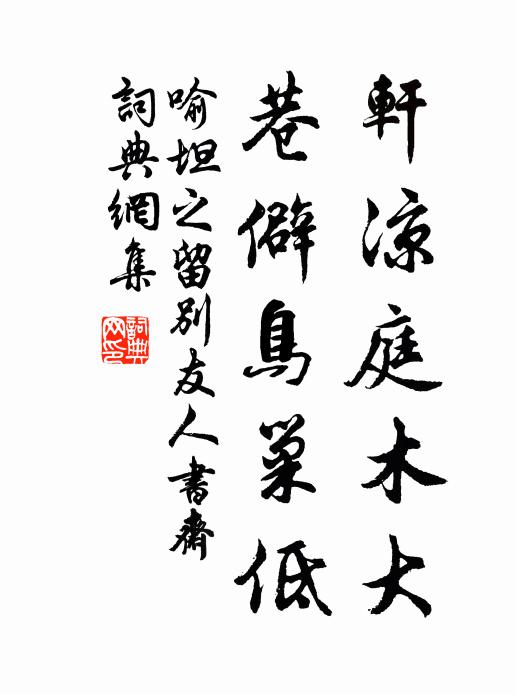 軒涼庭木大
巷僻鳥巢低
喻坦之留別友人書齋
詞典網集
詞典网印